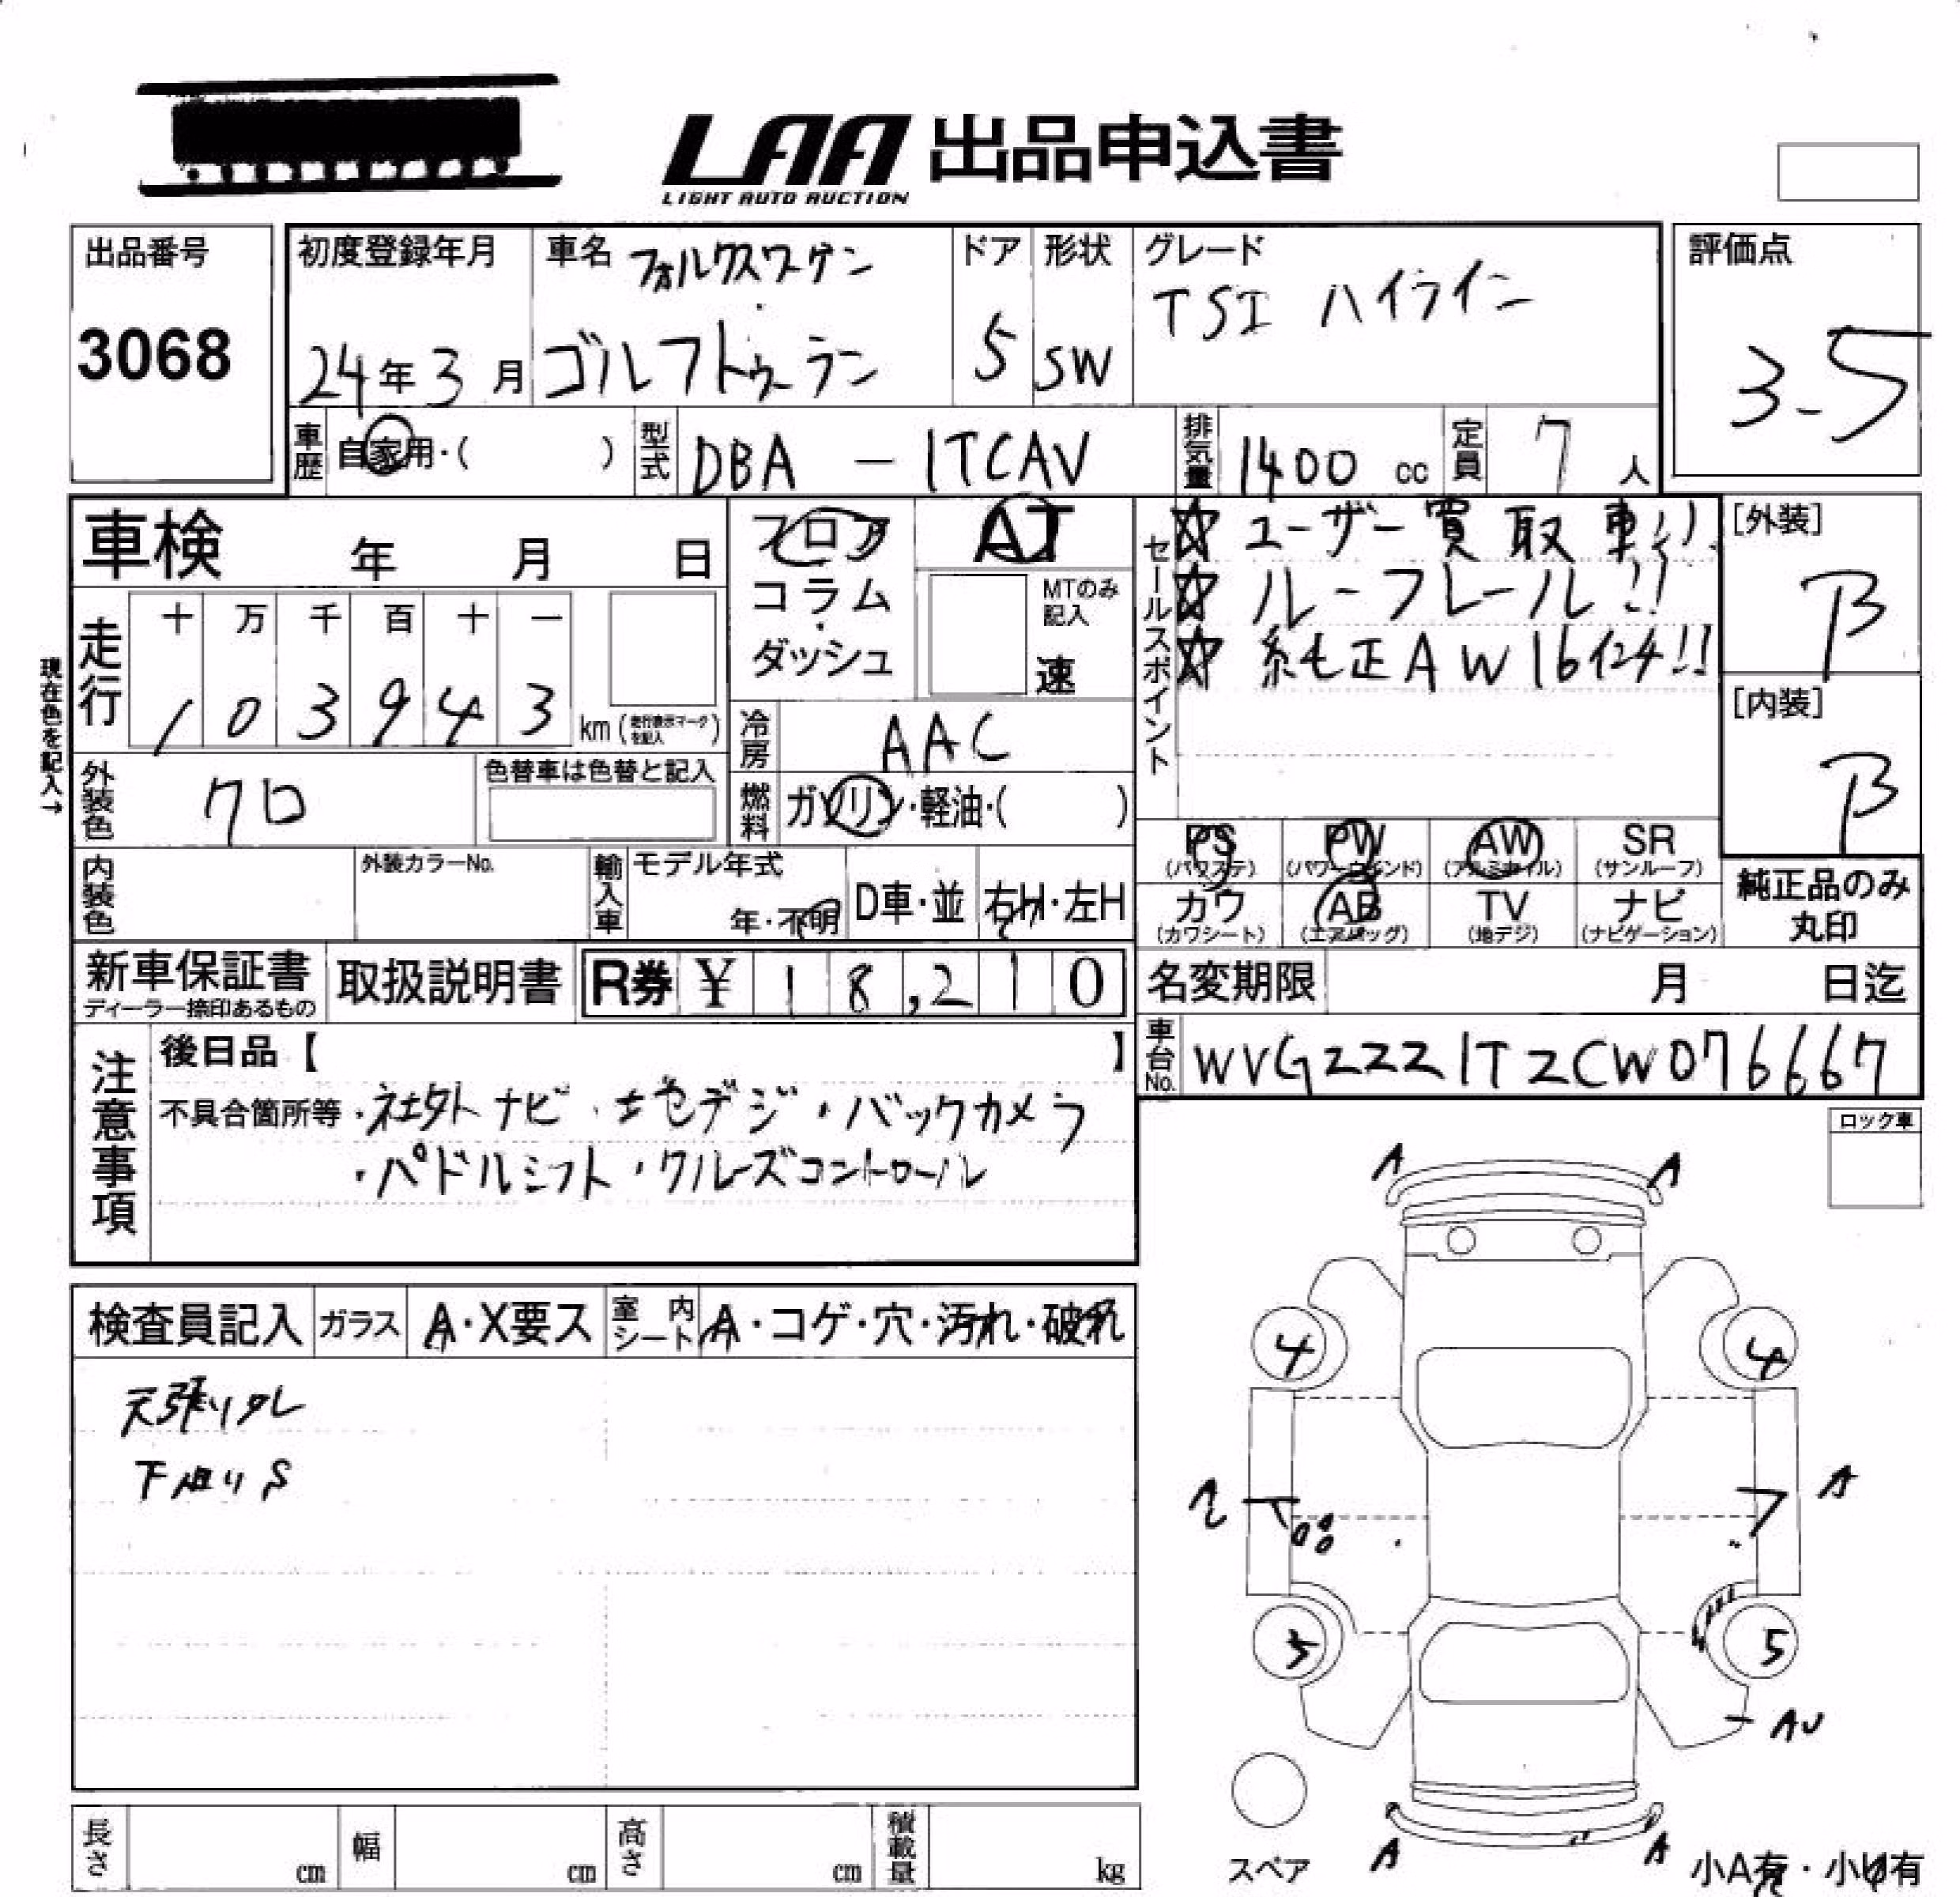 LAA 出品申込書
LIGHT AUTO AUCTION
出品番号
3068
初度登録年月
24年3月
車名 フォルクスワーゲン
ゴルフトゥーラン
ドア
5
形状
SW
グレード
TSI ハイライン
評価点
3-5
車歴 自家用・( )
型式 DBA - 1TCAV
排気量 1400 cc
定員 7 人
車検 年 月 日
フロア
コラム
・
ダッシュ
AT
MTのみ
記入
速
セールスポイント
☆ ユーザー買取車!!
☆ ルーフレール!!
☆ 純正AW16インチ!!
[外装]
B
[内装]
B
現在色を記入→
走行
十 万 千 百 十 一
1 0 3 9 4 3 km (走行表示マークを記入)
冷房 AAC
外装色 クロ
色替車は色替と記入
燃料 ガソリン・軽油・( )
PS
(パワステ)
PW
(パワーウィンド)
AW
(アルミホイル)
SR
(サンルーフ)
カワ
(カワシート)
AB
(エアバッグ)
TV
(地デジ)
ナビ
(ナビゲーション)
純正品のみ
丸印
内装色
外装カラーNo.
輸入車 モデル年式
年・不明
D車・並
右H・左H
新車保証書
ディーラー捺印あるもの
取扱説明書
R券 ¥ 18,210
名変期限 月 日迄
車台No. WVGZZZ1TZCW076667
注意事項
後日品【 】
不具合箇所等・社外ナビ・地デジ・バックカメラ
・パドルシフト・クルーズコントロール
ロック車
検査員記入
ガラス
A・X要ス
室内シート
A・コゲ・穴・汚れ・破れ
天張りタレ
下廻りS
A A
4 4
A
3 5
AU
A A
スペア
小A有・小U有
長さ cm
幅 cm
高さ cm
積載量 kg